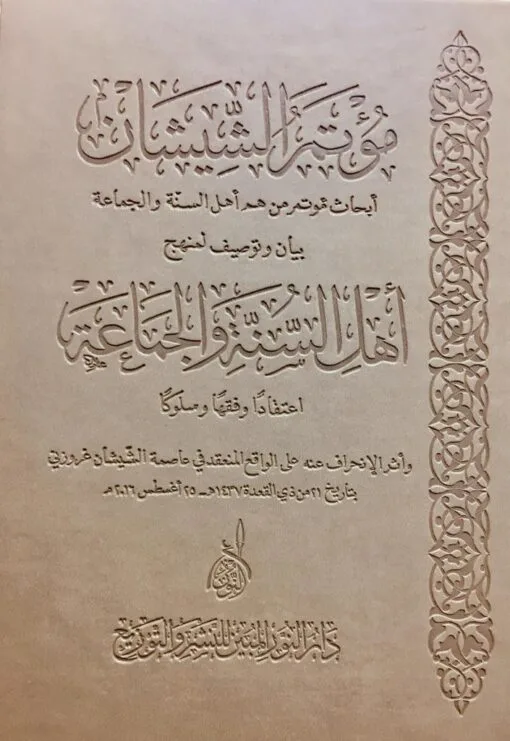 مُؤْتَمَرُ الشِّيشَان
أبحاث مؤتمر من هم أهل السنّة والجماعة
بيان وتوصيف لمنهج
أَهْلِ السُّنَّةِ وَالجَمَاعَةِ
اعتقادًا وفقهًا وسلوكًا
وأثر الإنحراف عنه على الواقع المنعقد في عاصمة الشّيشان غروزني
بتاريخ ٢١ من ذي القعدة ١٤٣٧هـ ٢٥ أغسطس ٢٠١٦م
النور
دَارُ النُّورِ المُبِينِ لِلنَّشْرِ وَالتَّوْزِيعِ